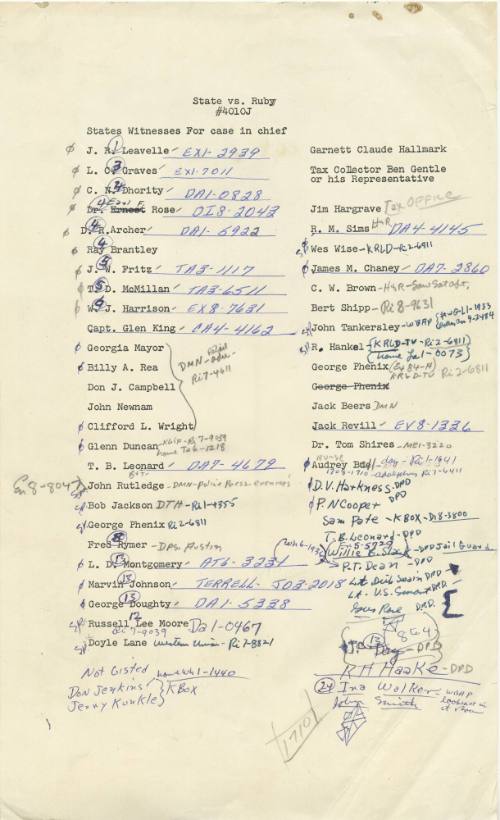 State vs. Ruby
#4010J
States Witnesses For case in chief
J. R. Leavelle EX1-2939
L. C. Graves EX1-7011
C. N. Dhority DA1-0828
Dr. Ernest Rose DI8-2042
D. R. Archer DA1-5922
Ray Brantley
J. W. Fritz TA3-1117
T. D. McMillan TA3-6511
W. J. Harrison EX8-7631
Capt. Glen King CA4-4162
Georgia Mayor
Billy A. Rea
DMN
Ri7-4611
Don J. Campbell
John Newnam
Clifford L. Wright
Glenn Duncan
T. B. Leonard DA7-4679
John Rutledge -DMN-Police Press
Bob Jackson DTH - Ri1-4355
George Phenix Ri2-6811
Fred Rymer - DPS Austin
L. D. Montgomery AT6-3234
Marvin Johnson TERRELL- JO3-2018
George Doughty DA1-5338
Russell Lee Moore Da1-0467
Ri7-9039
Doyle Lane Western Union - Ri7-8821
Not Listed
Don Jenkins
Jerry Kunkle
KBox
Garnett Claude Hallmark
Tax Collector Ben Gentle
or his Representative
Jim Hargrave Tax OFFICE
R. M. Sims H&R DA4-4145
Wes Wise-KRLD-Ri2-6911
James M. Chaney DA7-2860
C. W. Brown-H&R
Bert Shipp - Ri8-9631
John Tankersley-WBAP
R. Hankel KRLD-TV-Ri2-6811
home La1-0073
George Phenix
KRLD-TV Ri2-6811
George Phenix
Jack Beers DMN
Jack Revill EV8-1336
Dr. Tom Shires -ME1-3220
Audrey Bell
D.V. Harkness DPD
P.N Cooper DPD
Sam Pate - KBOX-DI8-3800
T.B. Leonard-DPD
Willie B. Slack-DPD Jail Guard
P.T. Dean - DPD
J. Day-DPD
R H Haake-DPD
24 Ina Walker- WBAP
Smith
1710